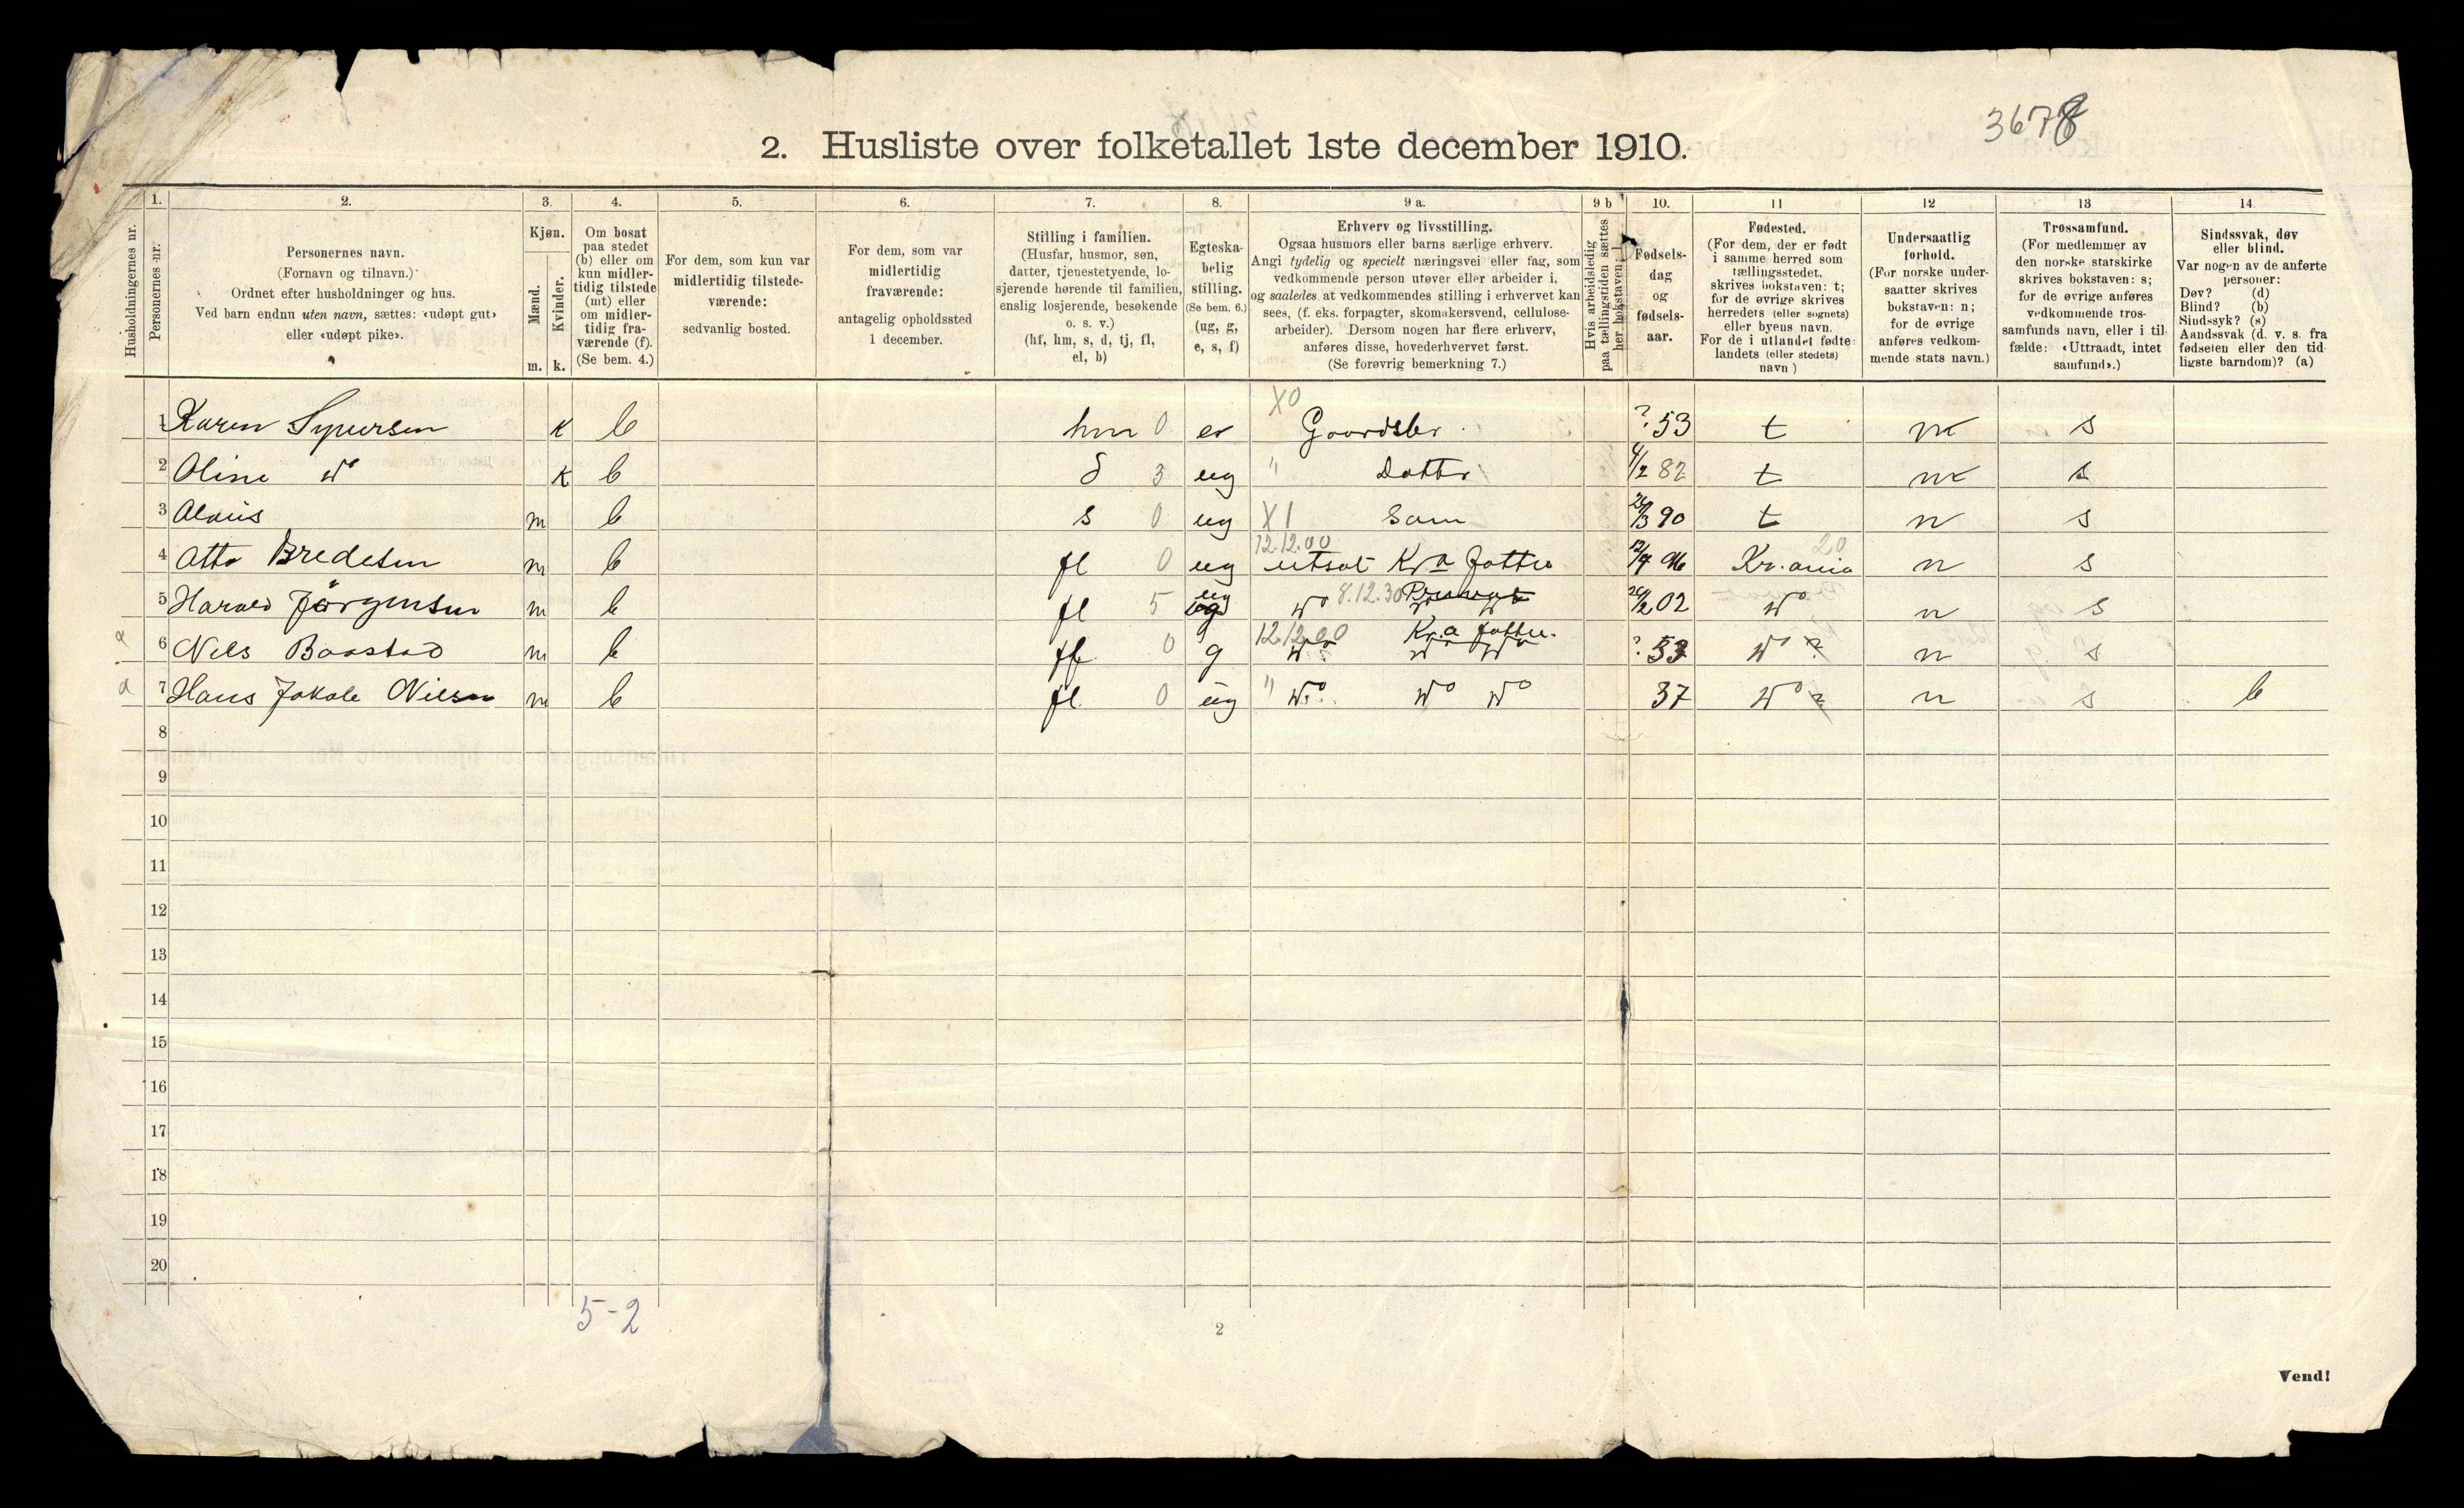 3678
2. Husliste over folketallet 1ste december 1910.
Husholdningernes nr.
1.
Personernes nr.
2.
Personernes navn.
(Fornavn og tilnavn.)
Ordnet efter husholdninger og hus.
Ved barn endnu uten navn, sættes: «udøpt gut»
eller «udøpt pike».
3.
Kjøn.
Mænd.
Kvinder.
m. k.
4.
Om bosat
paa stedet
(b) eller om
kun midler-
tidig tilstede
(mt) eller
om midler-
tidig fra-
værende (f).
(Se bem. 4.)
5.
For dem, som kun var
midlertidig tilstede-
værende:
sedvanlig bosted.
6.
For dem, som var
midlertidig
fraværende:
antagelig opholdssted
1 december.
7.
Stilling i familien.
(Husfar, husmor, søn,
datter, tjenestetyende, lo-
sjerende hørende til familien,
enslig losjerende, besøkende
o. s. v.)
(hf, hm, s, d, tj, fl,
el, b)
8.
Egteska-
belig
stilling.
(Se bem. 6.)
(ug, g,
e, s, f)
9 a.
Erhverv og livsstilling.
Ogsaa husmors eller barns særlige erhverv.
Angi tydelig og specielt næringsvei eller fag, som
vedkommende person utøver eller arbeider i,
og saaledes at vedkommendes stilling i erhvervet kan
sees, (f. eks. forpagter, skomakersvend, cellulose-
arbeider). Dersom nogen har flere erhverv,
anføres disse, hovederhvervet først.
(Se forøvrig bemerkning 7.)
9 b
Hvis arbeidsledig
paa tællingstiden sættes
her bokstaven: l
10.
Fødsels-
dag
og
fødsels-
aar.
11
Fødested.
(For dem, der er født
i samme herred som
tællingsstedet,
skrives bokstaven: t;
for de øvrige skrives
herredets (eller sognets)
eller byens navn.
For de i utlandet fødte:
landets (eller stedets)
navn)
12
Undersaatlig
forhold.
(For norske under-
saatter skrives
bokstaven: n;
for de øvrige
anføres vedkom-
mende stats navn.)
13
Trossamfund.
(For medlemmer av
den norske statskirke
skrives bokstaven: s;
for de øvrige anføres
vedkommende tros-
samfunds navn, eller i til-
fælde: «Uttraadt, intet
samfund».)
14.
Sindssvak, døv
eller blind.
Var nogen av de anførte
personer:
Døv? (d)
Blind? (b)
Sindssyk? (s)
Aandssvak (d. v. s. fra
fødselen eller den tid-
ligste barndom)? (a)
X0
1 Karen Syversen k b hm 0 e Gaardsbr. ? 53 t n s
2 Oline do k b d 3 ug " Datter 4/2 82 t n s
3 m b s 0 ug X1 Søn 90 t n s
12.12.00 20
4 Otto Bredesen m b fl 0 ug utsat Kra Kr.ania n s
8.12.30
5 Harald Jørgensen m b fl 5 ug do 02 do n s
12.12.00 Kr.a
6 Nils Baastad m b fl 0 g do do do ? 53 do ? n s
7 Hans Jakob Nilsen m b fl 0 ug " do do do 37 do ? n s b
8
9
10
11
12
13
14
15
16
17
18
19
20
5-2
2
Vend!